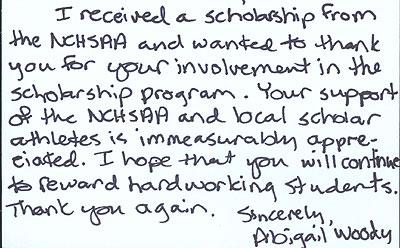 I received a scholarship from
the NCHSAA and wanted to thank
you for your involvement in the
scholarship program. Your support
of the NCHSAA and local scholar
athletes is immeasurably appre-
ciated. I hope that you will continue
to reward hardworking students.
Thank you again. Sincerely,
Abigail Woody